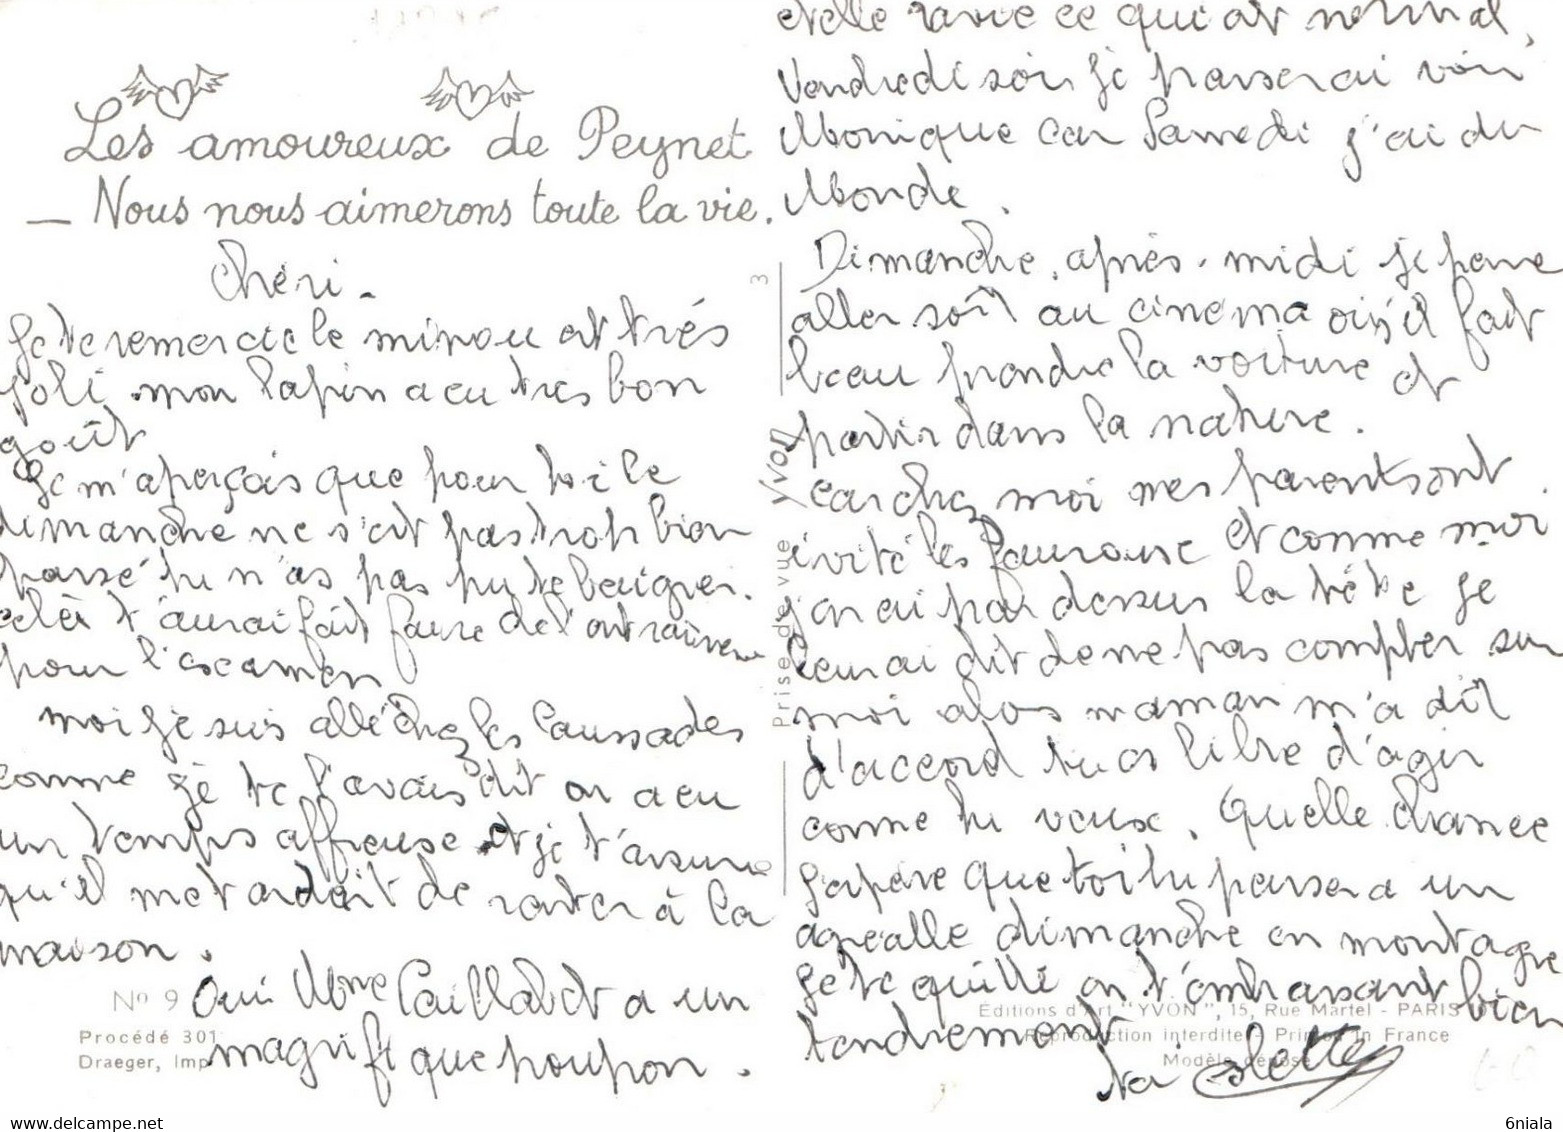 Les amoureux de Peynet
— Nous nous aimerons toute la vie.
Chéri -
Je te remercie le minou est très
joli mon lapin a eu très bon
goût
Je m'aperçois que pour toi le
dimanche ne s'est pas trop bien
passé tu n'as pas pu te baigner.
cela t'aurai fait faire de l'entrainement
pour l'examen
moi je suis allé chez les Caussades
comme je te l'avais dit on a eu
un temps affreuse et je t'assure
qu'il me tardait de renter à la
maison.
Oui Mme Caillabet a un
magnifique poupon.
etelle ravie ce qui est normal,
Vendredi soir je passerai voir
Monique car Samedi j'ai du
Monde.
Dimanche après-midi je pense
aller soit au cinéma ou s'il fait
beau prendre la voiture et
partir dans la nature.
car chez moi mes parents ont
invité les et comme moi
j'en ai par dessus la tête je
leur ai dit de ne pas compter sur
moi alors maman m'a dit
d'accord tu es libre d'agir
comme tu veux. Quelle chance
J'espère que toi tu passera un
agréable dimanche en montagne
Je te quitte en t'embrassant bien
tendrement
ta
3
Prise de vue YVON
Nº 9
Procédé 301
Draeger, Imp
Éditions d'Art "YVON", 15, Rue Martel - PARIS
Reproduction interdite - Printed in France
Modèle déposé
60
6niala